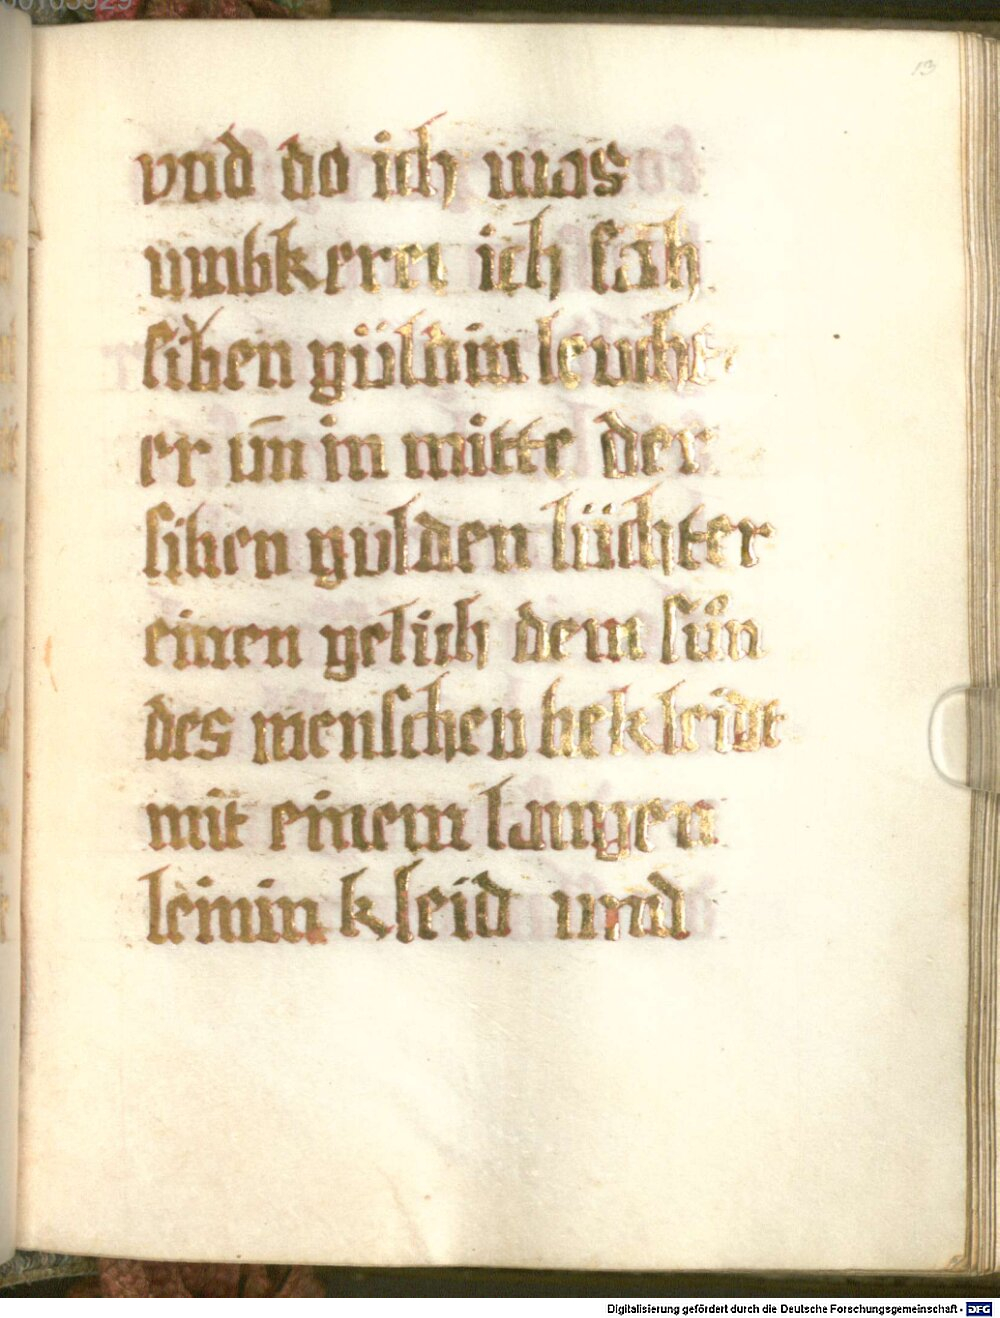 13
vnd do ich was
umbkerrt ich sah
siben güldin leuchtt
er im in mitte der
siben gulden lüchter
einen gelich dem sun
des menschen bekleidt
mit einem langen
leinin kleid und
Digitalisierung gefördert durch die Deutsche Forschungsgemeinschaft - DFG